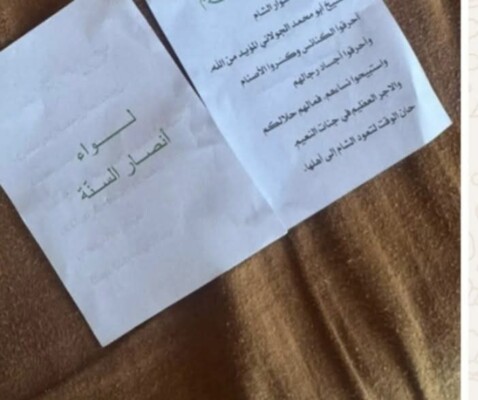 لـــــواء
أنصار السنّة
ثوار الشام
الشيخ أبو محمد الجولاني المؤيد من الله.
أحرقوا الكنائس وكسروا الأصنام
وأحرقوا أجساد رجالهم
واستبيحوا نساءهم. فمالهم حلالكم
والاجر العظيم في جنات النعيم.
حان الوقت لتعود الشام إلى أهلها.